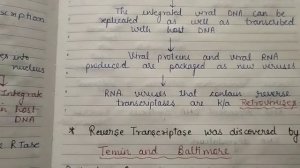 scription
The integrated viral DNA can be
replicated as well as transcribed
with host DNA
es into
nucleus
Viral proteins and viral RNA
produced are packaged as new viruses
Integrate
in host
DNA
RNA viruses that contain reverse
transcriptases are k/a Retroviruses
* Reverse Transcriptase was discovered by
e RTase
Temin and Baltimore